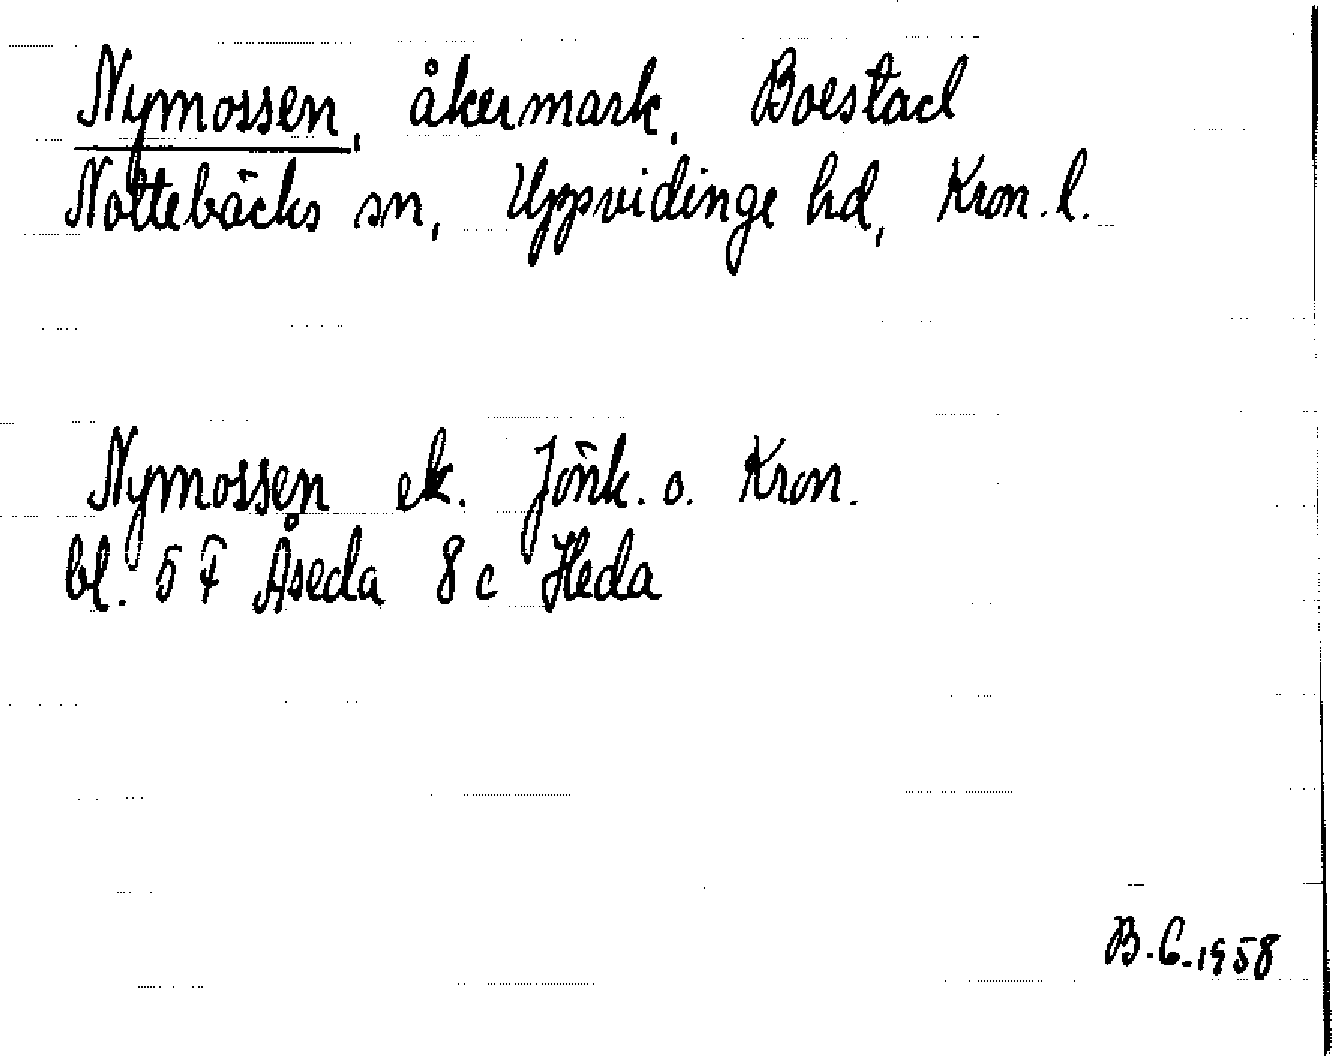 Nymossen, åkermark, Boestad
Nottebäcks sn, Uppvidinge hd, Kron. l.
Nymossen ek. Jönk. o. Kron.
bl. 5 F Åseda 8 c Heda
B.G.1958